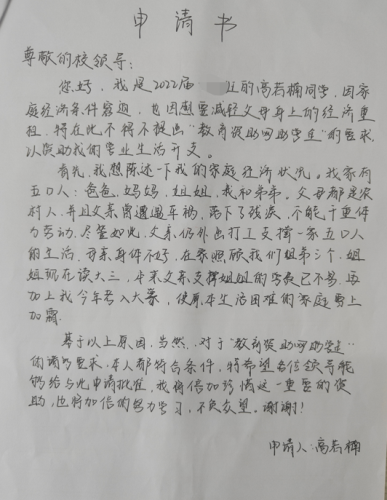 申请书
尊敬的校领导:
您好,我是2022届 班的高若楠同学,因家
庭经济条件窘迫,也因想要减轻父母身上的经济重
担,特在此不得不提出“教育资助网助学生”的要求,
以资助我的学业生活开支。
首先,我想陈述一下我的家庭经济状况。我家有
五口人:爸爸,妈妈,姐姐,我和弟弟。父母都是农
村人,并且父亲曾遭遇车祸,落下了残疾,不能干重体
力劳动,尽管如此,父亲仍外出打工支撑一家五口人
的生活,母亲身体不好,在家照顾我们姐弟三个,姐
姐现在读大三,本来父亲支撑姐姐的学费已不易,再
加上我今年考入大学,使原本生活困难的家庭雪上
加霜。
基于以上原因,当然,对于“教育资助网助学生”
的请求要求,本人都符合条件,特希望各位领导能
够给与此申请批准,我将倍加珍惜这一重要的资
助,也将加倍的努力学习,不负众望。谢谢!
申请人:高若楠